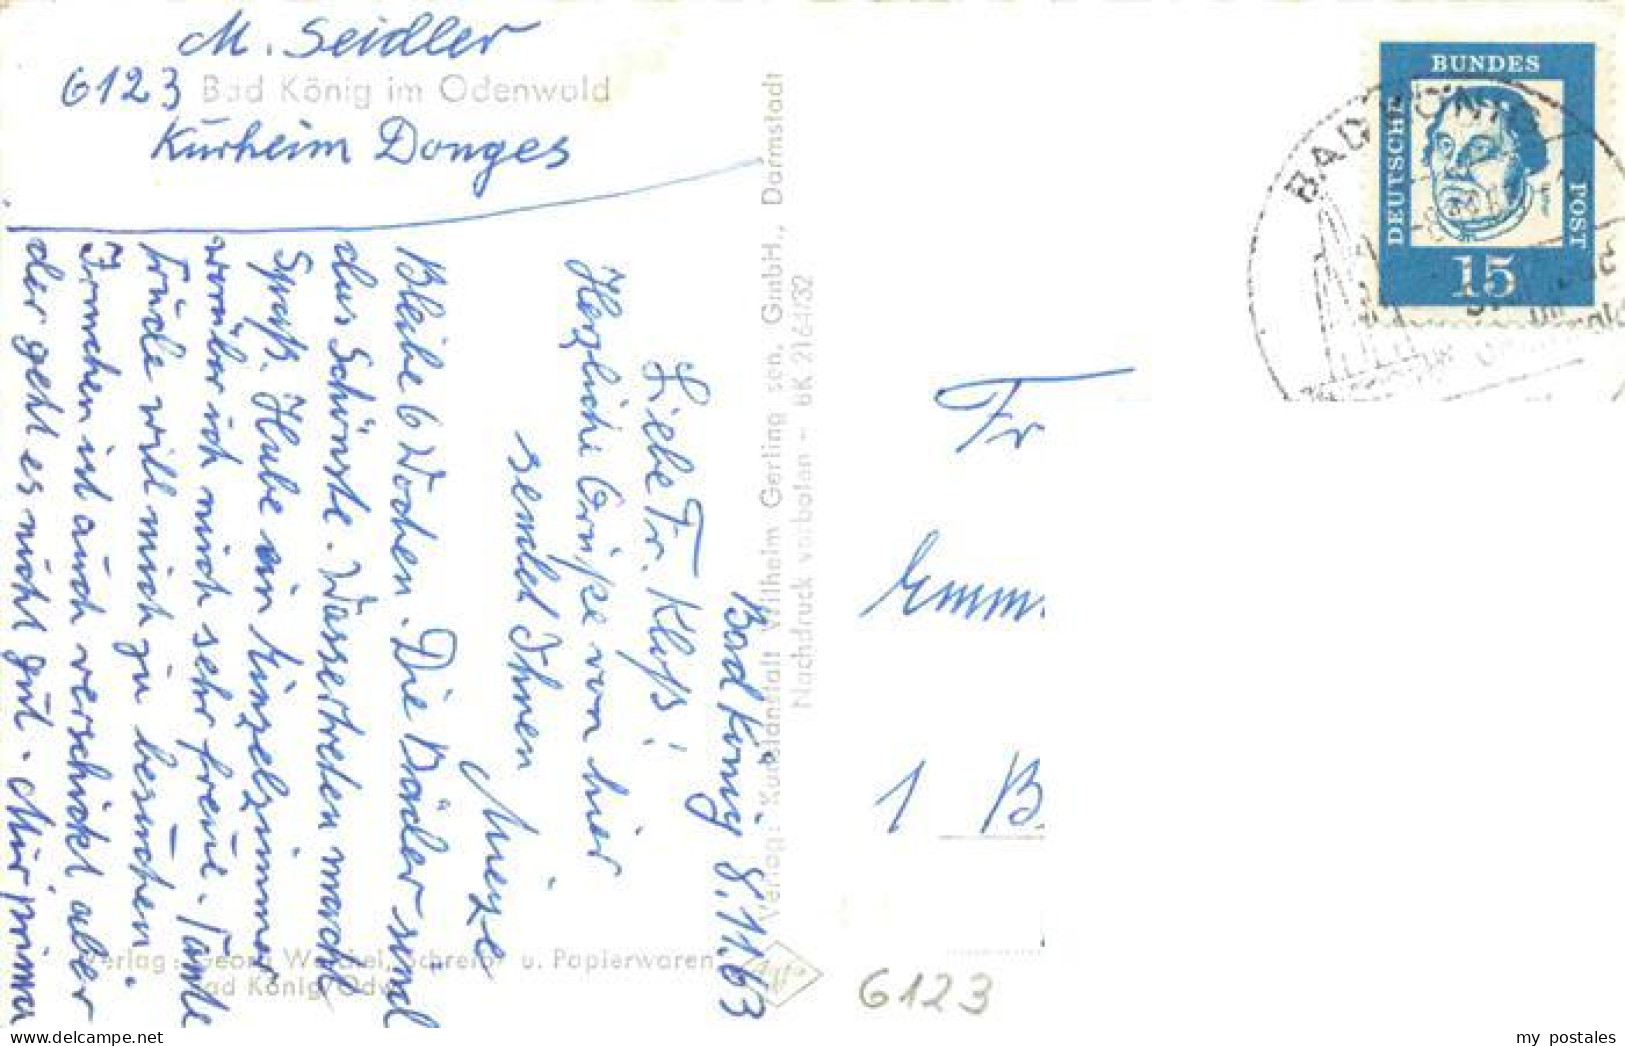 M. Seidler
6123 Bad König im Odenwald
Kurheim Donges
Bad König, 8.11.63
Liebe Fr. Kluß!
Herzliche Grüße von hier
sendet Ihnen
Mieze
Bleibe 6 Wochen. Die Bäder sind
das Schönste. Wassertreten macht
Spaß. Habe ein Einzelzimmer
worüber ich mich sehr freue. Tante
Trude will mich zu besuchen.
Irmchen ist auch verschickt aber
der geht es nicht gut. Mir prima
Verlag: Kunstanstalt Wilhelm Gerling sen. GmbH., Darmstadt
Nachdruck verboten – BK 2164/32
Verlag: Georg Weichel, Schreib- u. Papierwaren
Bad König/Odw.
DEUTSCHE BUNDES POST
15
Luther
BAD KÖNIG
Fr
Emm
1 B
6123
my postales